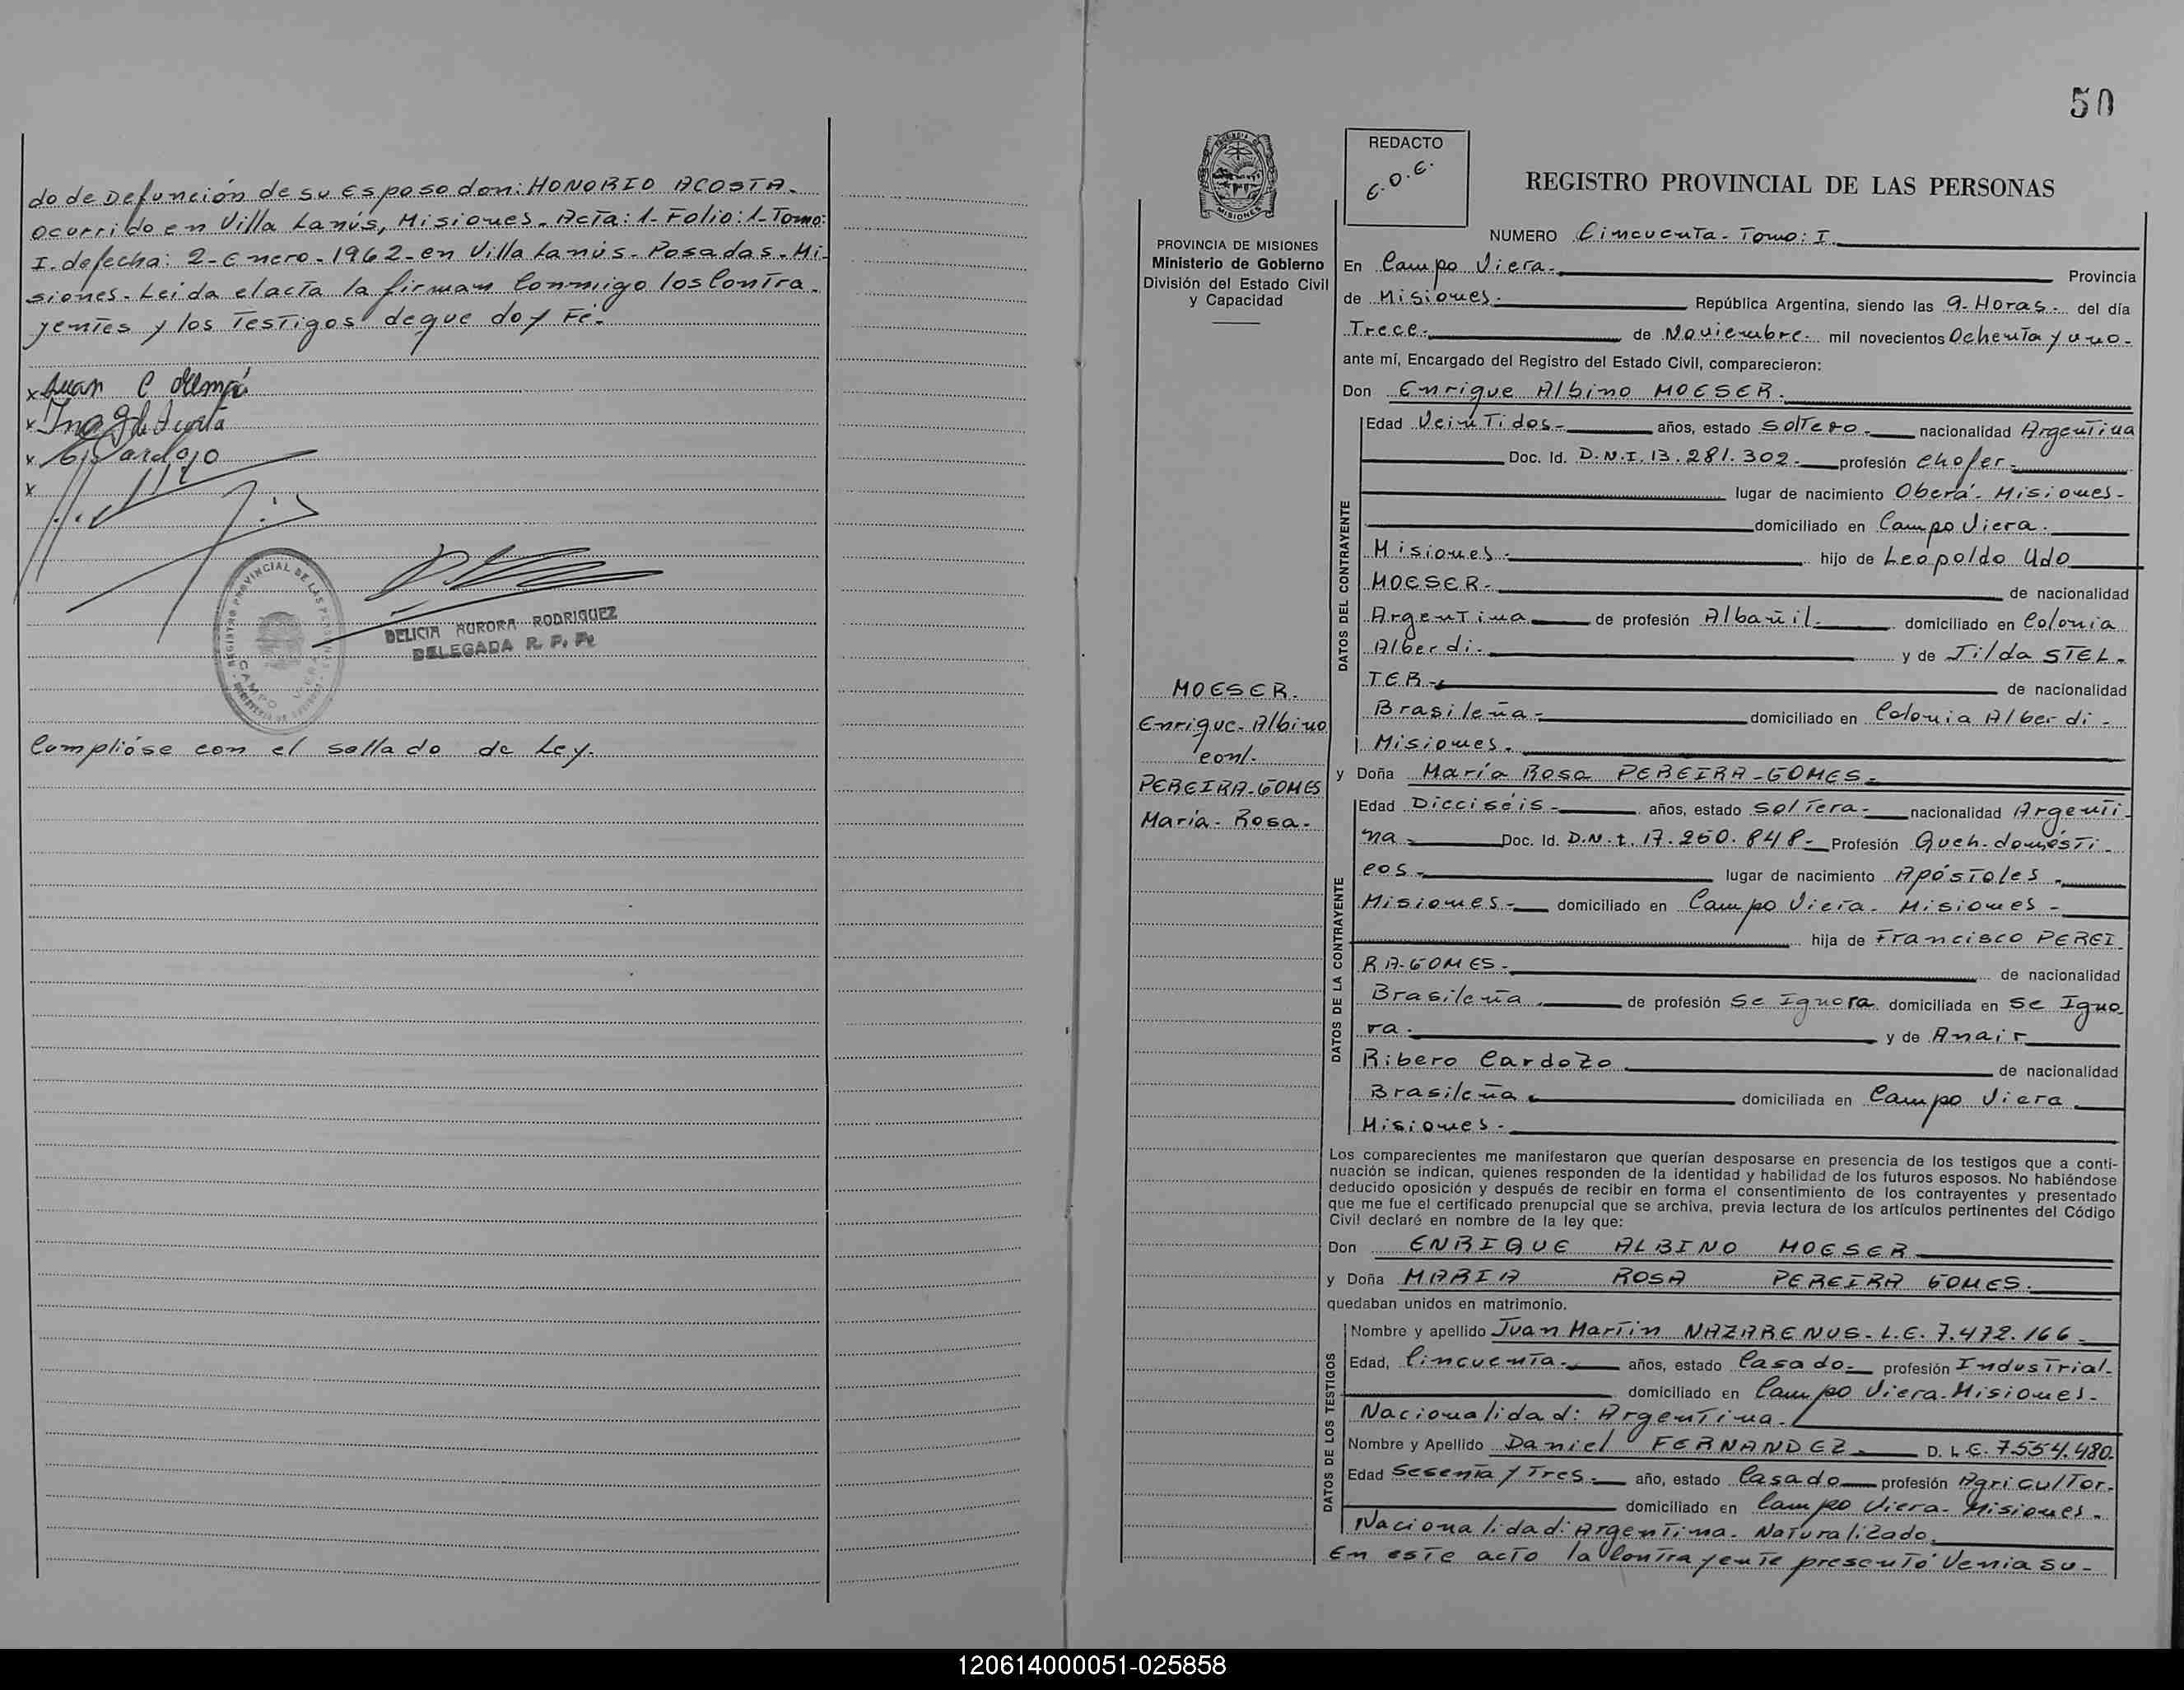 do de Defunción de su Esposo don: HONORIO ACOSTA.
ocurrido en Villa Lanús, Misiones. Acta: 1- Folio: 1- Tomo:
I. de fecha: 2- Enero- 1962- en Villa Lanús- Posadas- Mi-
siones- Leida el acta la firman Conmigo los Contra-
yentes y los Testigos de que doy Fé-
x Juan C
x
x
x
REGISTRO PROVINCIAL DE LAS PERSONAS
CAMPO VIERA
DELICIA AURORA RODRIGUEZ
DELEGADA R. P. P.
Complióse con el sellado de Ley.
50
REDACTO
C.O.C.
REGISTRO PROVINCIAL DE LAS PERSONAS
MISIONES
PROVINCIA DE MISIONES
Ministerio de Gobierno
División del Estado Civil
y Capacidad
NUMERO Cincuenta- Tomo: I.
En Campo Viera- Provincia
de Misiones- República Argentina, siendo las 9- Horas- del día
Trece- de Noviembre- mil novecientos Ochenta y uno-
ante mí, Encargado del Registro del Estado Civil, comparecieron:
Don Enrique Albino MOESER.
DATOS DEL CONTRAYENTE
Edad Veinti dos- años, estado Soltero- nacionalidad Argentina
Doc. Id. D.N.I. 13.281.302- profesión Chofer-
lugar de nacimiento Oberá- Misiones-
domiciliado en Campo Viera.
Misiones- hijo de Leopoldo Udo
MOESER- de nacionalidad
Argentina- de profesión Albañil- domiciliado en Colonia
Alberdi- y de Jilda STEL-
TER- de nacionalidad
Brasileña- domiciliado en Colonia Alberdi-
Misiones.
MOESER.
Enrique- Albino
con/.
PEREIRA-GOMES
María- Rosa-
y Doña María Rosa PEREIRA-GOMES-
DATOS DE LA CONTRAYENTE
Edad Dicciséis- años, estado Soltera- nacionalidad Argenti-
na- Doc. Id. D.N.I. 17.250.848- Profesión Queh. domésti-
cos- lugar de nacimiento Apóstoles-
Misiones- domiciliado en Campo Viera- Misiones-
hija de Francisco PEREI-
RA-GOMES- de nacionalidad
Brasileña. de profesión Se Ignora domiciliada en Se Igno-
ra. y de Anair
Ribero Cardozo de nacionalidad
Brasileña. domiciliada en Campo Viera
Misiones-
Los comparecientes me manifestaron que querían desposarse en presencia de los testigos que a conti-
nuación se indican, quienes responden de la identidad y habilidad de los futuros esposos. No habiéndose
deducido oposición y después de recibir en forma el consentimiento de los contrayentes y presentado
que me fue el certificado prenupcial que se archiva, previa lectura de los artículos pertinentes del Código
Civil declaré en nombre de la ley que:
Don ENRIQUE ALBINO MOESER
y Doña MARIA ROSA PEREIRA GOMES.
quedaban unidos en matrimonio.
DATOS DE LOS TESTIGOS
Nombre y apellido Juan Martin NAZARENUS- L.E. 7.472.166-
Edad, Cincuenta- años, estado Casado- profesión Industrial-
domiciliado en Campo Viera- Misiones-
Nacionalidad: Argentina-
Nombre y Apellido Daniel FERNANDEZ- D. L.E. 7554.480.
Edad Sesenta y Tres- año, estado Casado profesión Agricultor-
domiciliado en Campo Viera- Misiones-
Nacionalidad: Argentina- Naturalizado.
En este acto la Contrayente presentó Venia Su-
120614000051-025858